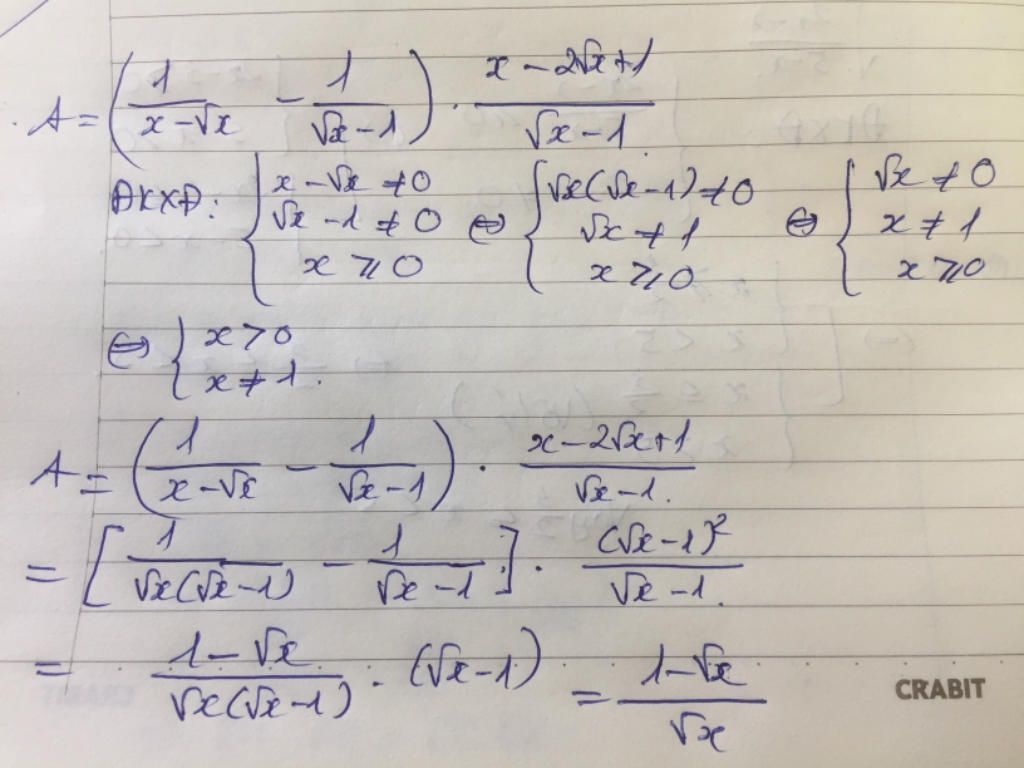 A = (1/(x - √x) - 1/(√x - 1)) · (x - 2√x + 1)/(√x - 1)
ĐKXĐ: { x - √x ≠ 0; √x - 1 ≠ 0; x ⩾ 0 ⇔ { √x(√x - 1) ≠ 0; √x ≠ 1; x ⩾ 0 ⇔ { √x ≠ 0; x ≠ 1; x ⩾ 0
⇔ { x > 0; x ≠ 1.
A = (1/(x - √x) - 1/(√x - 1)) · (x - 2√x + 1)/(√x - 1)
= [1/(√x(√x - 1)) - 1/(√x - 1)] · (√x - 1)²/(√x - 1)
= (1 - √x)/(√x(√x - 1)) · (√x - 1) = (1 - √x)/√x
CRABIT